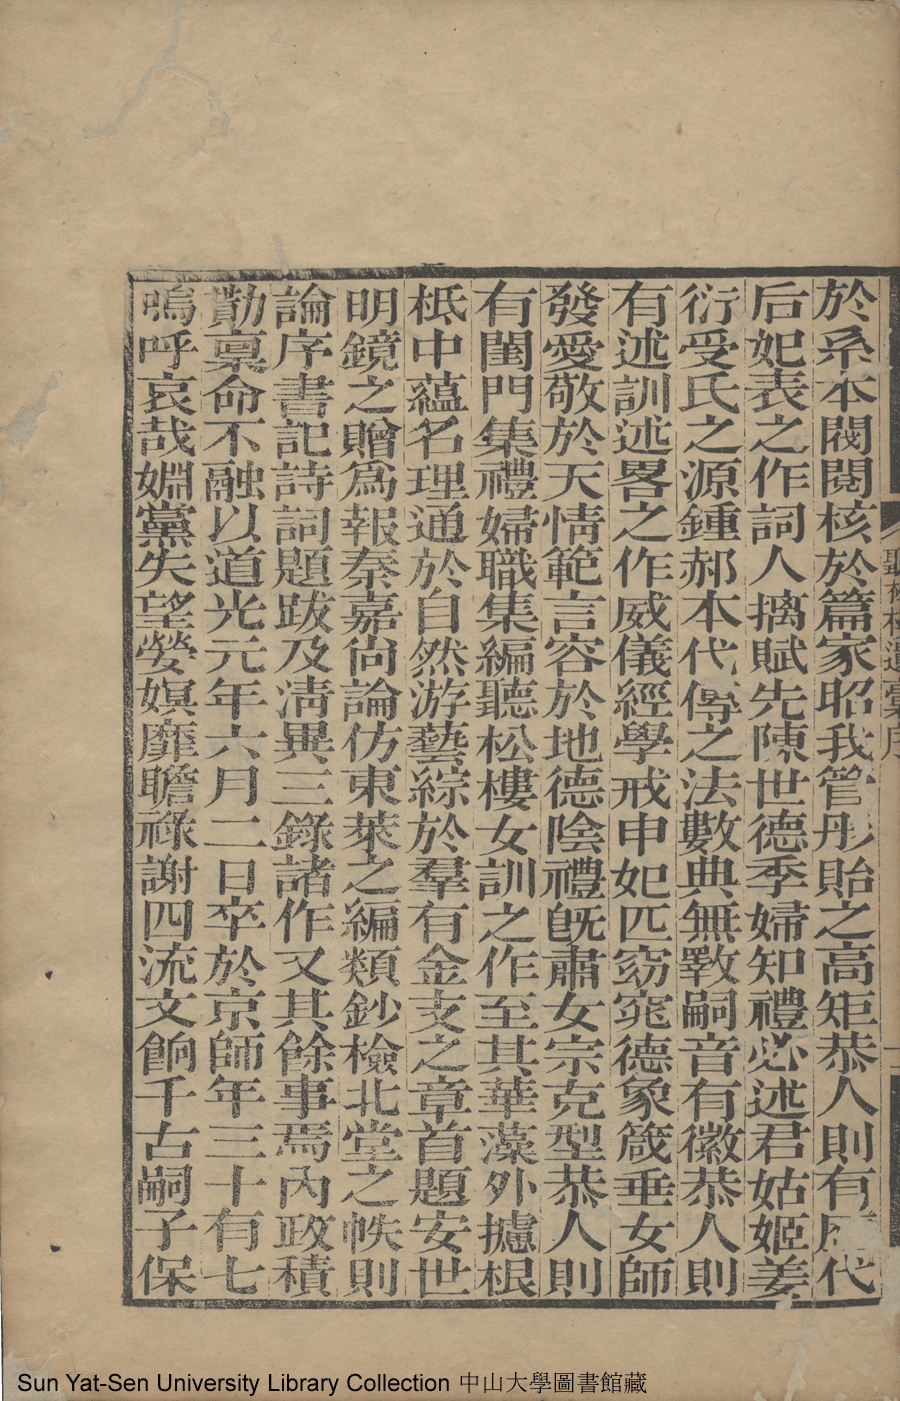 於系本閥閱核於篇家昭我管彤貽之高矩恭人則有歷代
后妃表之作詞人摛賦先陳世德季婦知禮必述君姑姬姜
衍受氏之源鍾郝本代傳之法數典無斁嗣音有徽恭人則
有述訓述畧之作威儀經學戒申妃匹窈窕德象箴垂女師
發愛敬於天情範言容於地德陰禮旣肅女宗克型恭人則
有閨門集禮婦職集編聽松樓女訓之作至其華藻外攄根
柢中蘊名理通於自然游藝綜於羣有金支之章首題安世
明鏡之贈爲報秦嘉尙論仿東萊之編類鈔檢北堂之帙則
論序書記詩詞題跋及淸異三錄諸作又其餘事焉內政積
勩稟命不融以道光元年六月二日卒於京師年三十有七
嗚呼哀哉婣黨失望嫈嫇靡瞻祿謝四流文餉千古嗣子保
聽松樓遺稾序
一
Sun Yat-Sen University Library Collection 中山大學圖書館藏